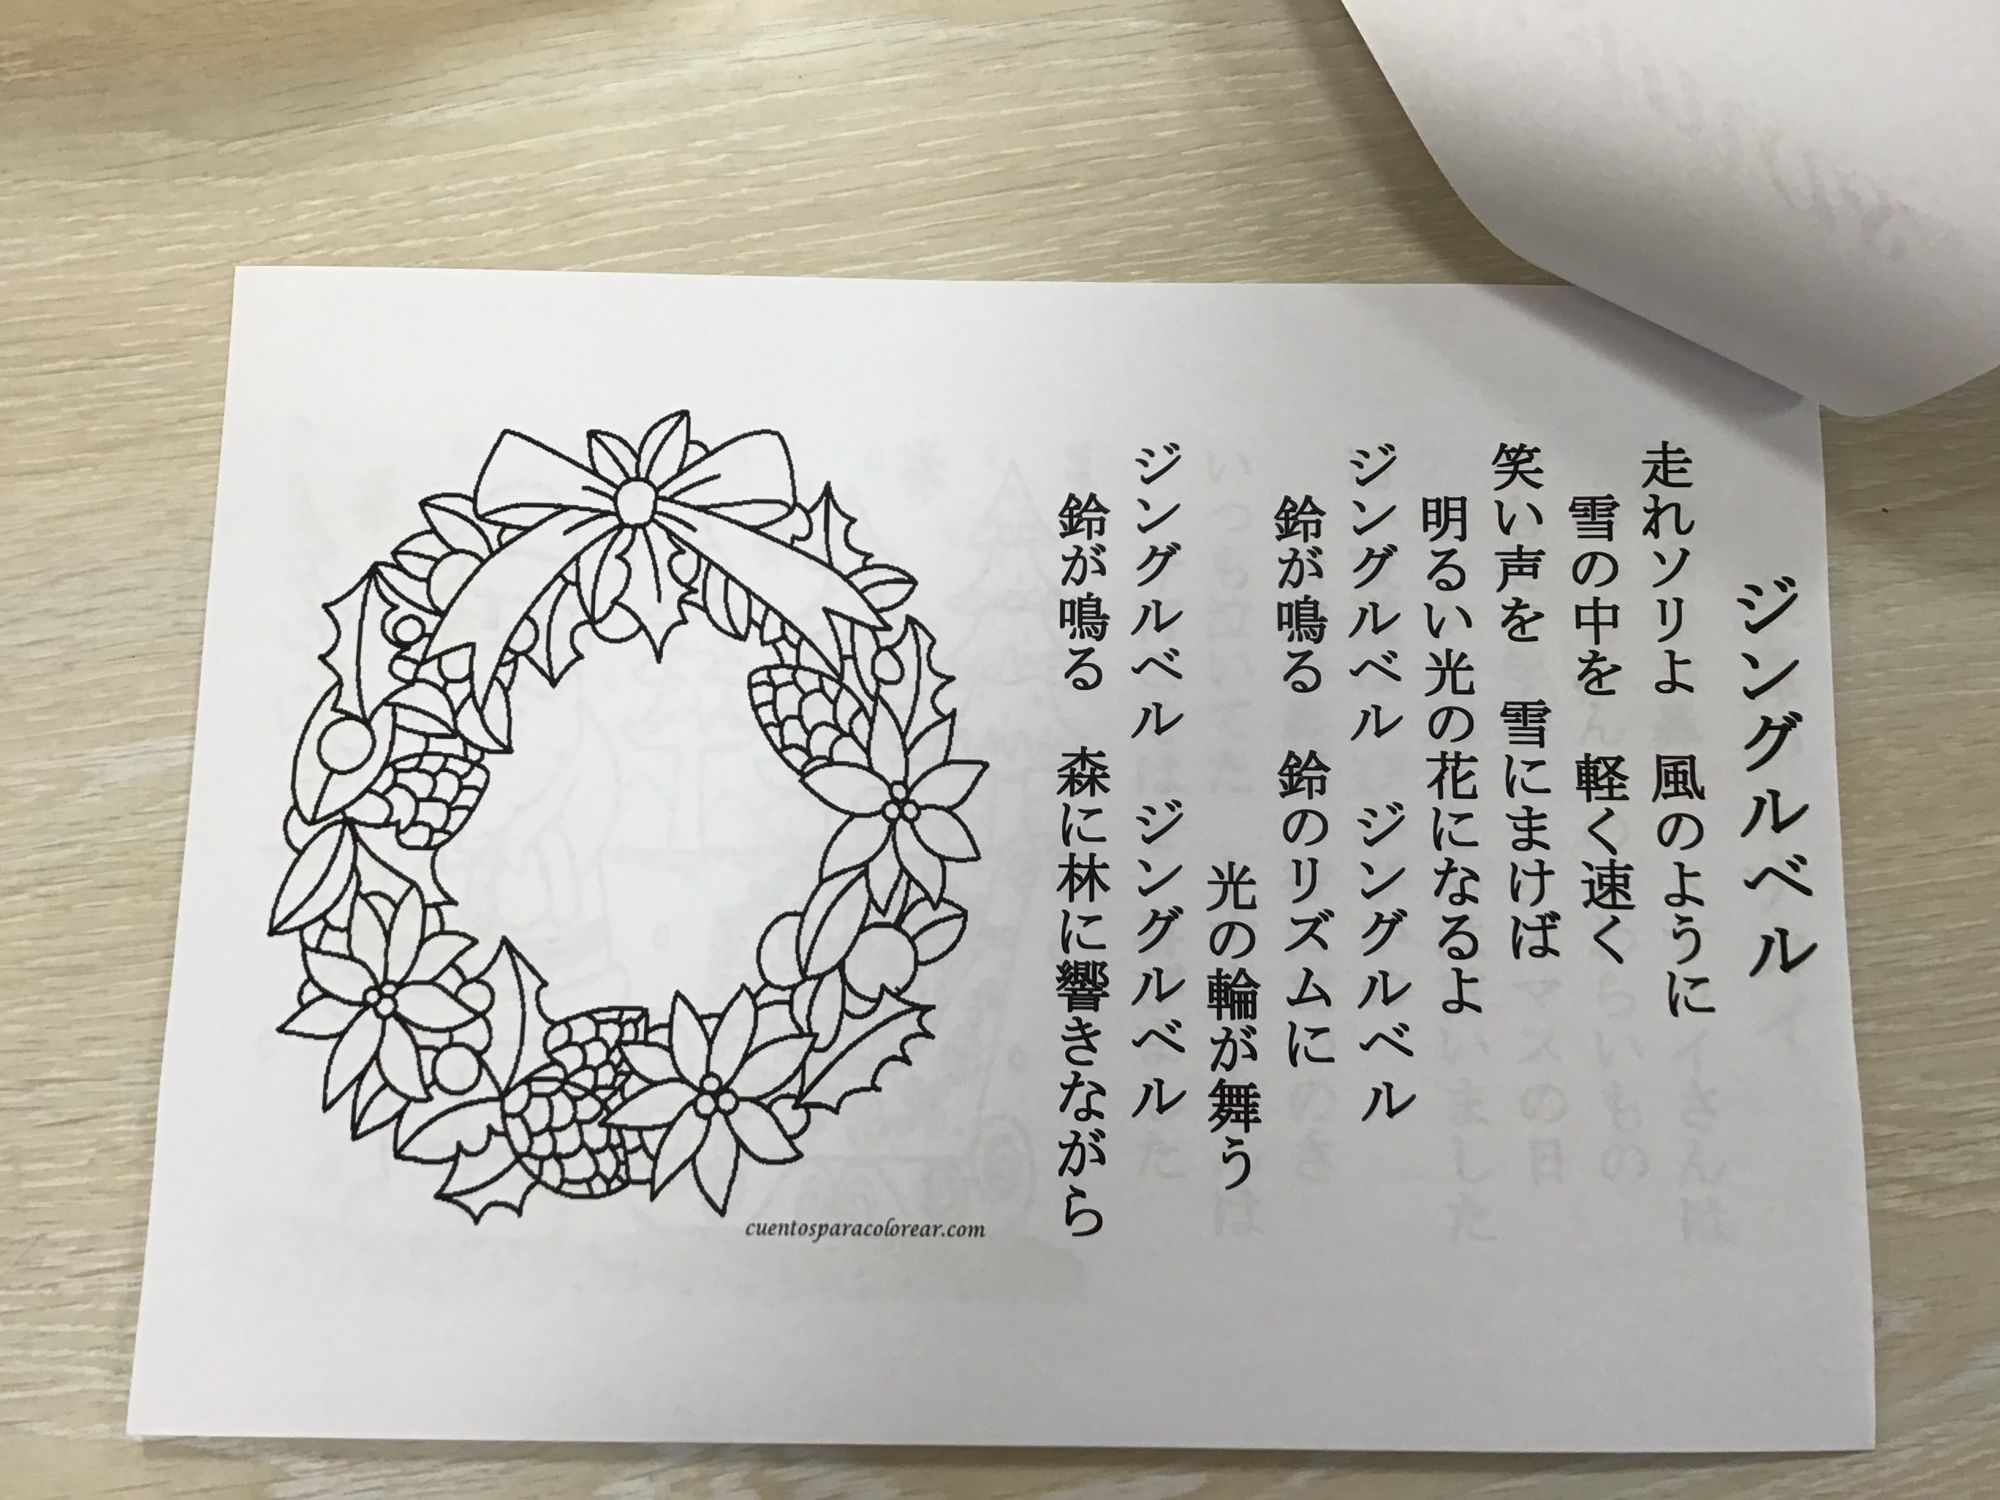 ジングルベル
走れソリよ　風のように
雪の中を　軽く速く
笑い声を　雪にまけば
明るい光の花になるよ
ジングルベル　ジングルベル
鈴が鳴る　鈴のリズムに
光の輪が舞う
ジングルベル　ジングルベル
鈴が鳴る　森に林に響きながら
cuentosparacolorear.com